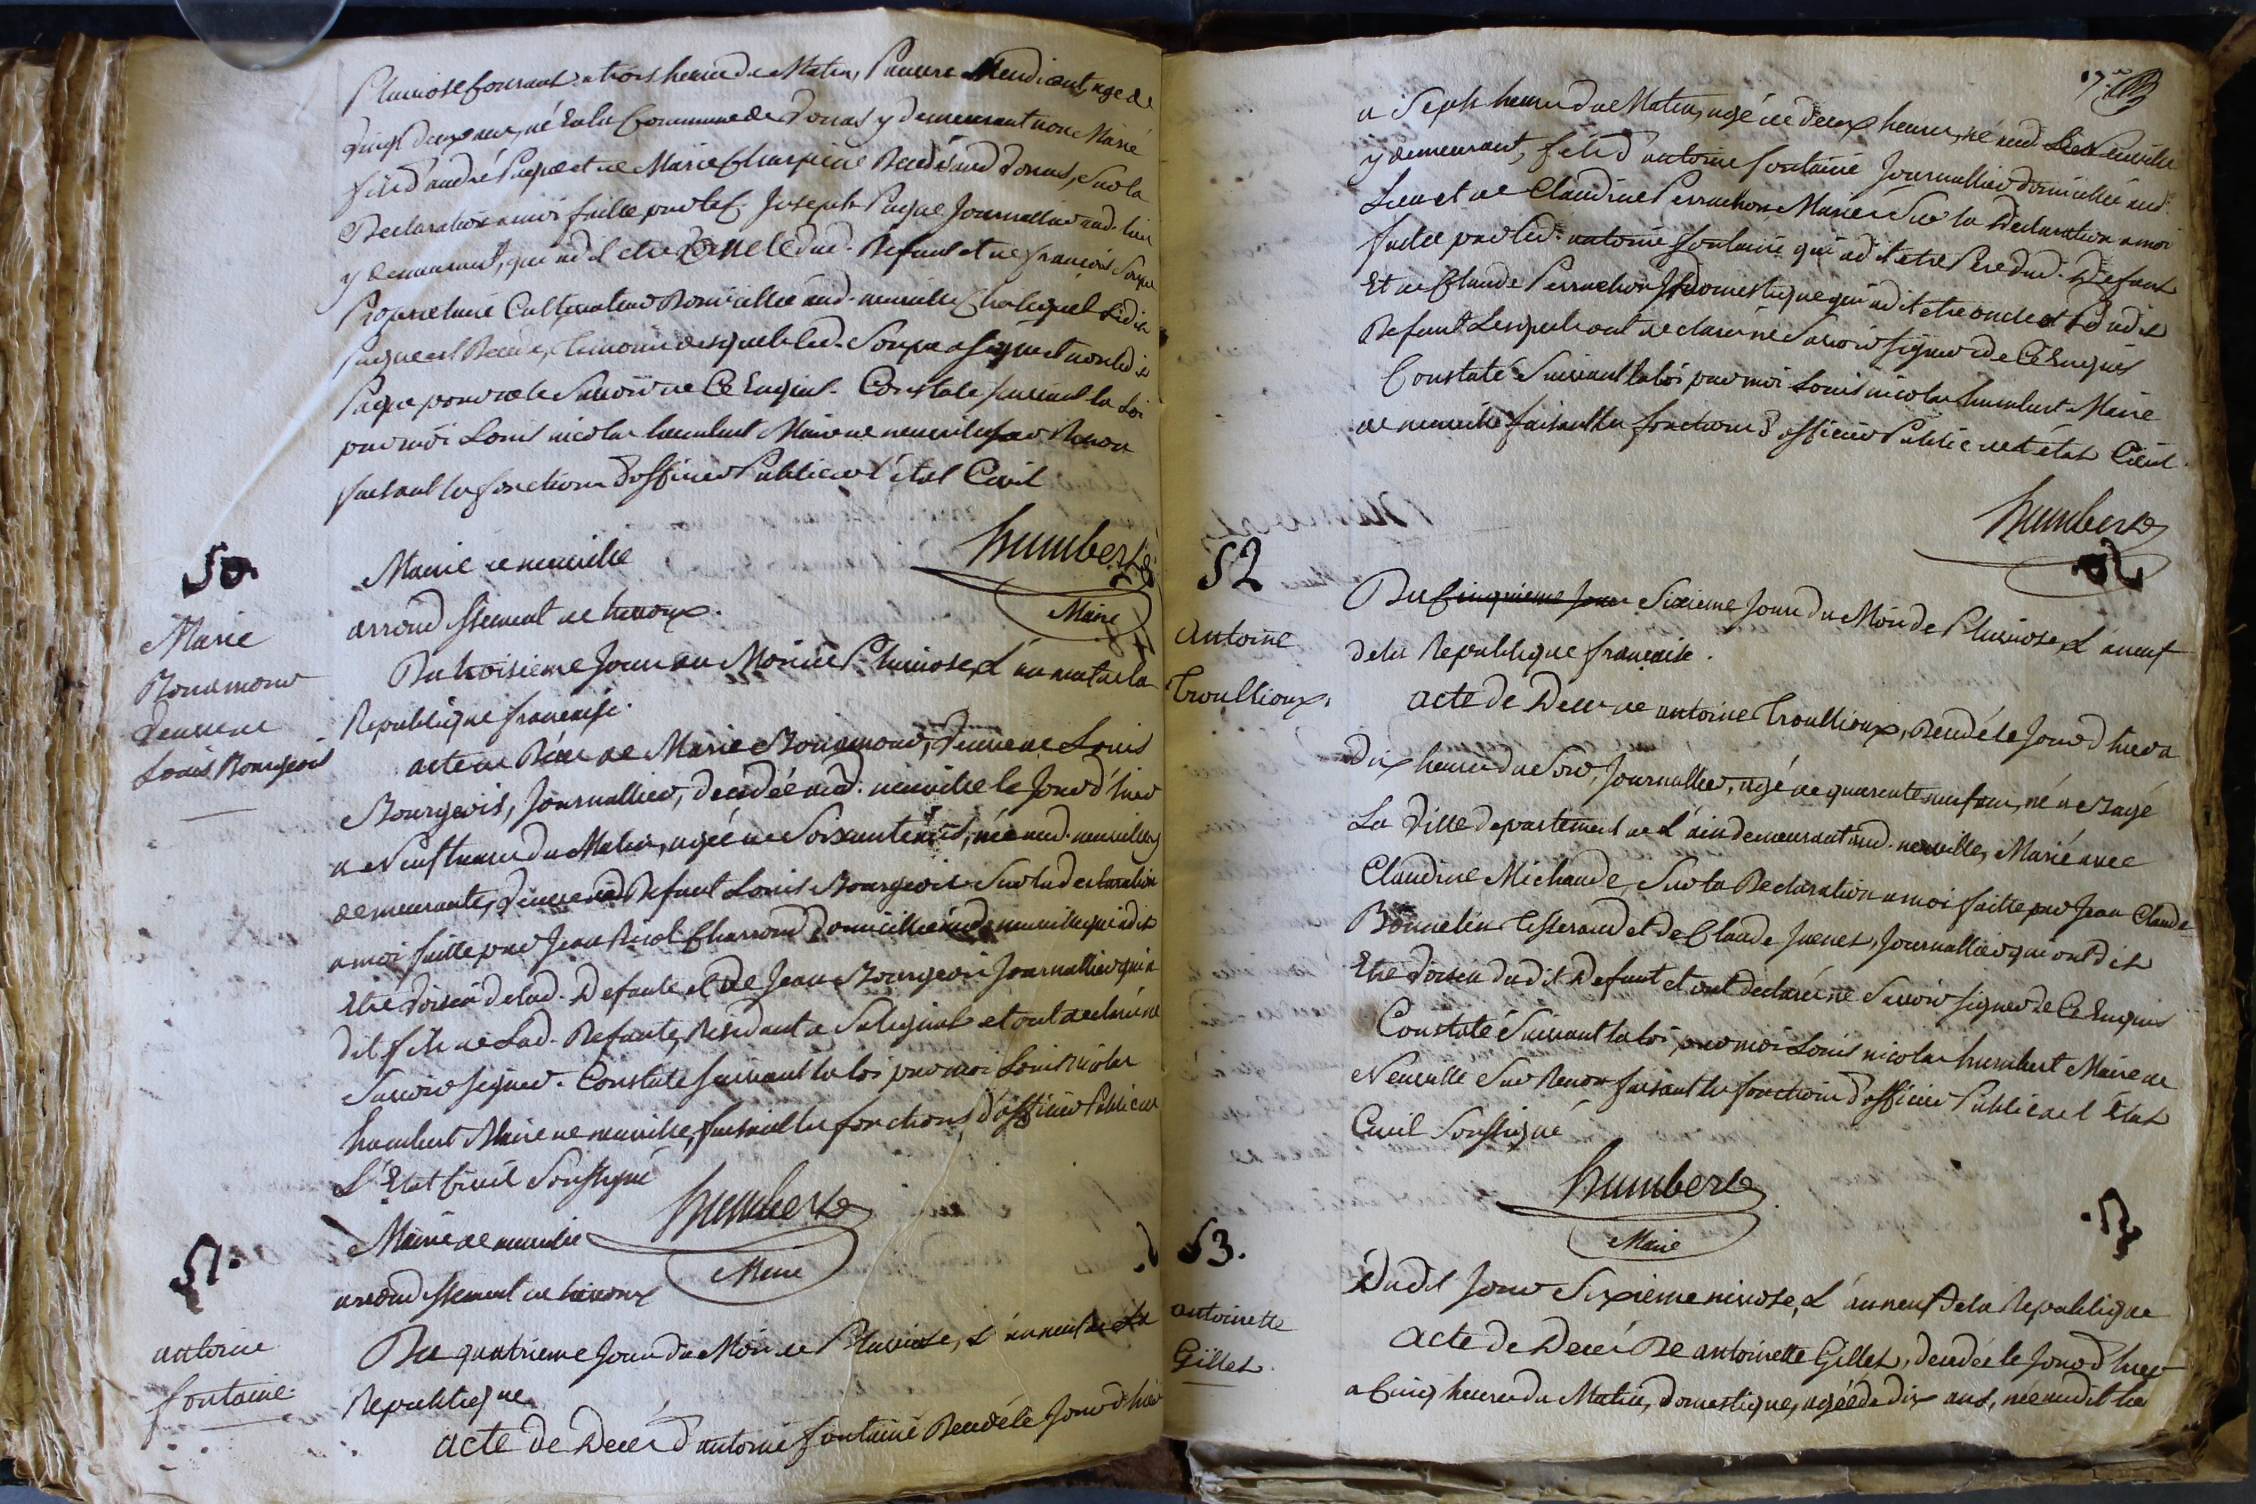 Pluviose Courant a trois heures du Matin, Pauvre Mendiant, age de
vingt deux ans, né en la Commune de Donas y demeurant non Marié
fils d'andré Paque et de Marie Charpine Decedé aud. Donas, Sur la
Declaration a moi faitte par le C. Joseph Paque Journallier aud. lieu
y demeurant, qui a dit etre oncle dud. Defunt et de francois Soupe
Proprietaire Cultivateur Domicillié aud. neuville Chez lequel ledit
Paque est Decedé, temoins desquels led. Soupe a signé et non ledit
Paque pour ne le Savoir de Ce Enquis. Constaté suivant la Loi
par moi Louis nicolas humbert Maire de neuville sur Renon
faisant les fonctions d'officier Public de l'état Civil
humbert
Maire
50.
Marie
Bondmour
veuve de
Louis Bourgeois
Mairie de neuville
arrondissement de trevoux.
Du troisieme Jour du Mois de Pluviose, L'an neuf de la
Republique francaise.
acte de Décés de Marie Bondmour, veuve de Louis
Bourgeois, Journallier, decedée aud. neuville le Jour d'hier
a Neuf heures du Matin, agée de Soixante , née aud. neuville y
demeurante, veuve dud Defunt Louis Bourgeois Sur la declaration
a moi faitte par Jean Charrond Domicillié aud neuville qui a dit
Etre voisin de lad. Defunte et de Jean Bourgeois Journallier qui a
dit fils de Lad. Defunte, Residant a Sulignat et ont declaré ne
Savoir signer. Constaté suivant la loi par moi Louis nicolas
humbert Maire de neuville, faisant les fonctions d'officier Public de
L'Etat Civil Soussigné
humbert
Maire
51.
antoine
fontaine.
Mairie de neuville
arrondissement de trevoux
Du quatrieme Jour du Mois de Pluviose, L'an neuf de la
Republique
acte de Decés d'antoine fontaine Decedé le Jour d'hier
a Sept heures du Matin, agé de deux heures, né aud. neuville
y demeurant, fils d'antoine fontaine Journallier domicillié aud.
Lieu et de Claudine Perruchon Mariés Sur la Declaration a moi
faitte par led. antoine fontaine qui a dit etre Pere dud. Defunt
Et de Claude Perruchon domestique qui a dit etre oncle dudit
Defunt Lesquels ont declaré ne Savoir signer de Ce Enquis
Constaté Suivant la loi par moi Louis nicolas humbert Maire
de neuville faisant les fonctions d'officier Public de l'état Civil.
humbert
52
Antoine
Troullioux.
Du Cinquieme Jour Sixieme Jour du Mois de Pluviose, L'an neuf
de la Republique francaise.
acte de Deces de antoine Troullioux, Decedé le Jour d'hier a
Dix heures du Soir, Journallier, agé de quarante neuf ans, né a Bagé
La Ville departement de L'ain demeurant aud. neuville, Marié avec
Claudine Michaude, Sur la Declaration a moi faitte par Jean Claude
Bonnelin Tisserand et de Claude Juenet, Journallier qui ont dit
Etre voisin dudit Defunt et ont declaré ne Savoir signer de Ce Enquis
Constaté Suivant la loi, par moi Louis nicolas humbert Maire de
Neuville Sur Renon faisant les fonctions d'officier Public de l'Etat
Civil Soussigné
humbert
Maire
53.
antoinette
Gillet.
Dudit Jour Sixieme nivose, L'an neuf de la Republique
acte de Decés De antoinette Gillet, decedée le Jour d'hier
a Cinq heures du Matin, domestique, agée de dix ans, née audit lieu